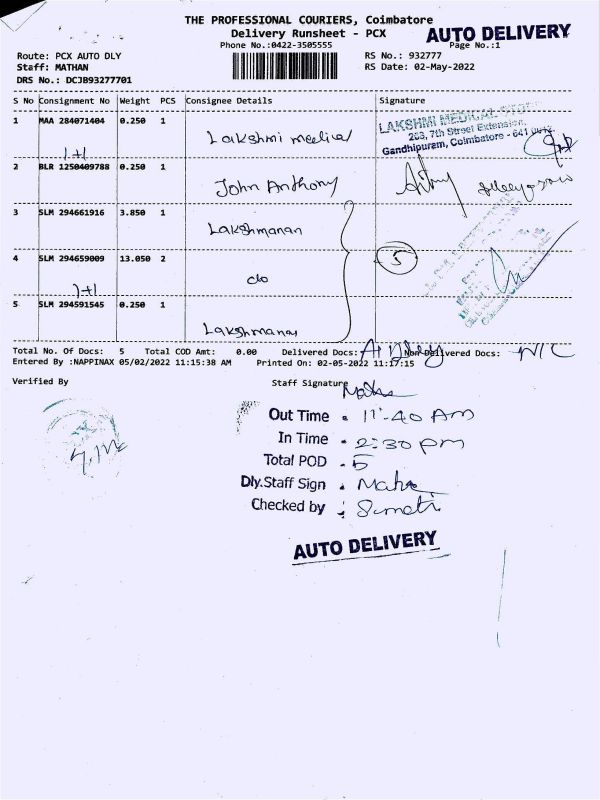 THE PROFESSIONAL COURIERS, Coimbatore
Delivery Runsheet - PCX
AUTO DELIVERY
Phone No.:0422-3505555
Page No.:1
Route: PCX AUTO DLY
RS No.: 932777
Staff: MATHAN
RS Date: 02-May-2022
DRS No.: DCJB93277701
S No Consignment No Weight PCS Consignee Details Signature
1 MAA 284071404 0.250 1
Lakshmi medical
LAKSHMI MEDICAL STORE
263, 7th Street Extension,
Gandhipuram, Coimbatore - 641 012.
1+1
2 BLR 1250409788 0.250 1
John Anthony
3 SLM 294661916 3.850 1
Lakshmanan
4 SLM 294659009 13.050 2
5
c/o
1+1
5 SLM 294591545 0.250 1
Lakshmanan
Total No. Of Docs: 5 Total COD Amt: 0.00 Delivered Docs: Non-Delivered Docs:
Entered By :NAPPINAX 05/02/2022 11:15:38 AM Printed On: 02-05-2022 11:17:15
Verified By Staff Signature
Out Time . 11-40 AM
In Time . 2:30 pm
Total POD . 5
Dly.Staff Sign .
Checked by :
AUTO DELIVERY